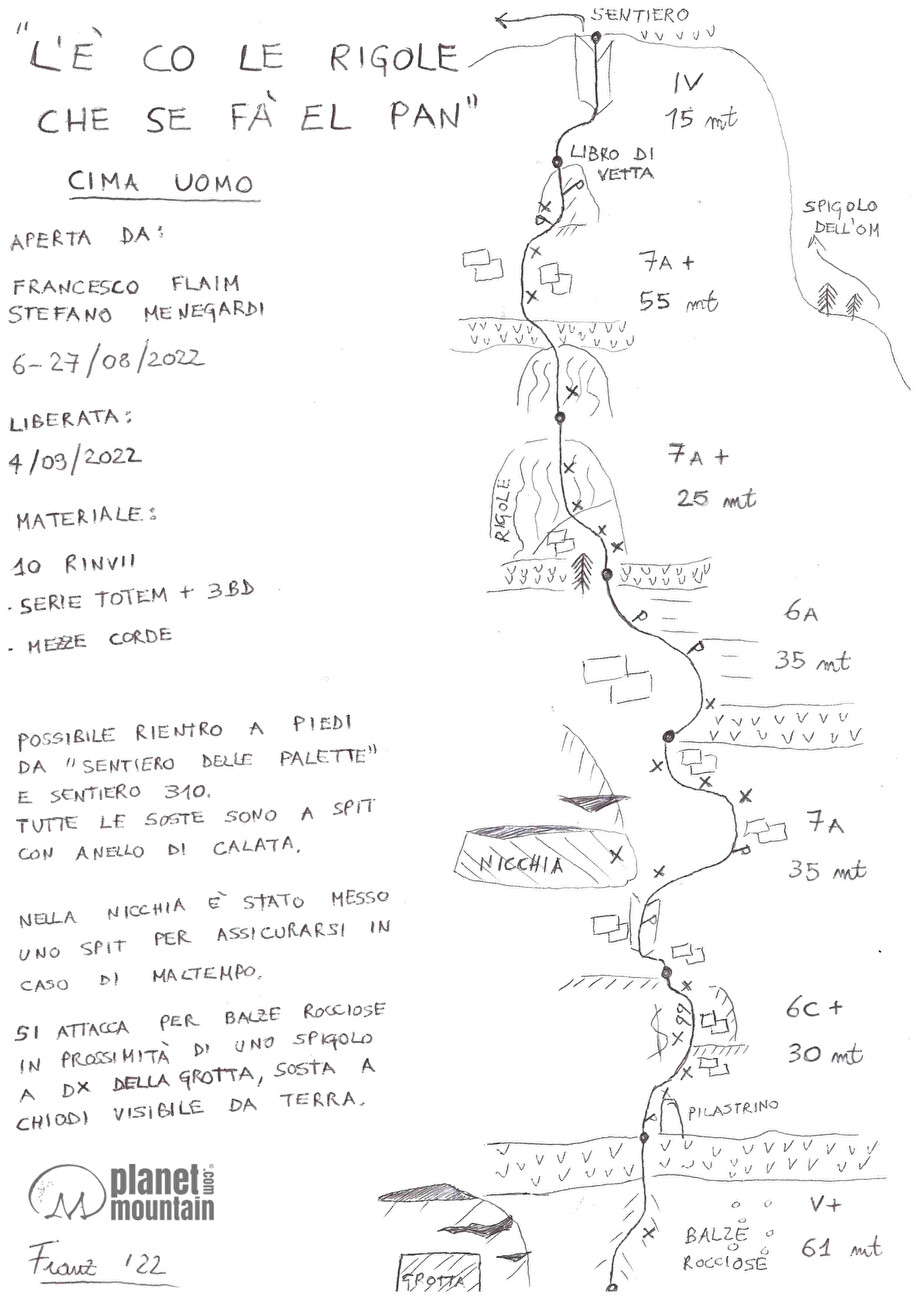 "L'È CO LE RIGOLE
CHE SE FÀ EL PAN"
CIMA UOMO
APERTA DA:
FRANCESCO FLAIM
STEFANO MENEGARDI
6-27/08/2022
LIBERATA:
4/09/2022
MATERIALE:
10 RINVII
· SERIE TOTEM + 3BD
· MEZZE CORDE
POSSIBILE RIENTRO A PIEDI
DA "SENTIERO DELLE PALETTE"
E SENTIERO 310.
TUTTE LE SOSTE SONO A SPIT
CON ANELLO DI CALATA.
NELLA NICCHIA È STATO MESSO
UNO SPIT PER ASSICURARSI IN
CASO DI MALTEMPO.
SI ATTACCA PER BALZE ROCCIOSE
IN PROSSIMITÀ DI UNO SPIGOLO
A DX DELLA GROTTA, SOSTA A
CHIODI VISIBILE DA TERRA.
planet
mountain
.com
Franz '22
SENTIERO
IV
15 mt
LIBRO DI
VETTA
SPIGOLO
DELL'OM
7A +
55 mt
7A +
25 mt
RIGOLE
6A
35 mt
7A
35 mt
NICCHIA
6C +
30 mt
PILASTRINO
V+
61 mt
BALZE
ROCCIOSE
GROTTA